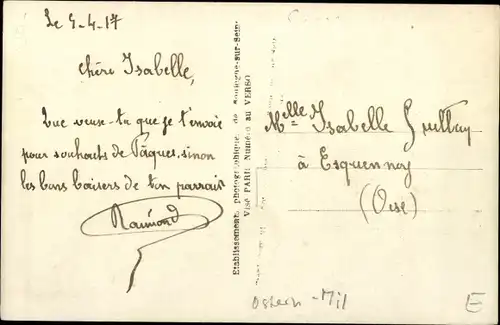 Le 5-4-17
Chère Isabelle,
Que veux-tu que je t'envoie
pour souhaits de Pâques, sinon
les bons baisers de ton parrain
Raimond
Etablissements photographiques de Boulogne-sur-Seine
VISÉ PARIS Numéro au VERSO
Melle Isabelle
à Esquennoy
(Oise)
Ostern - Mil
E